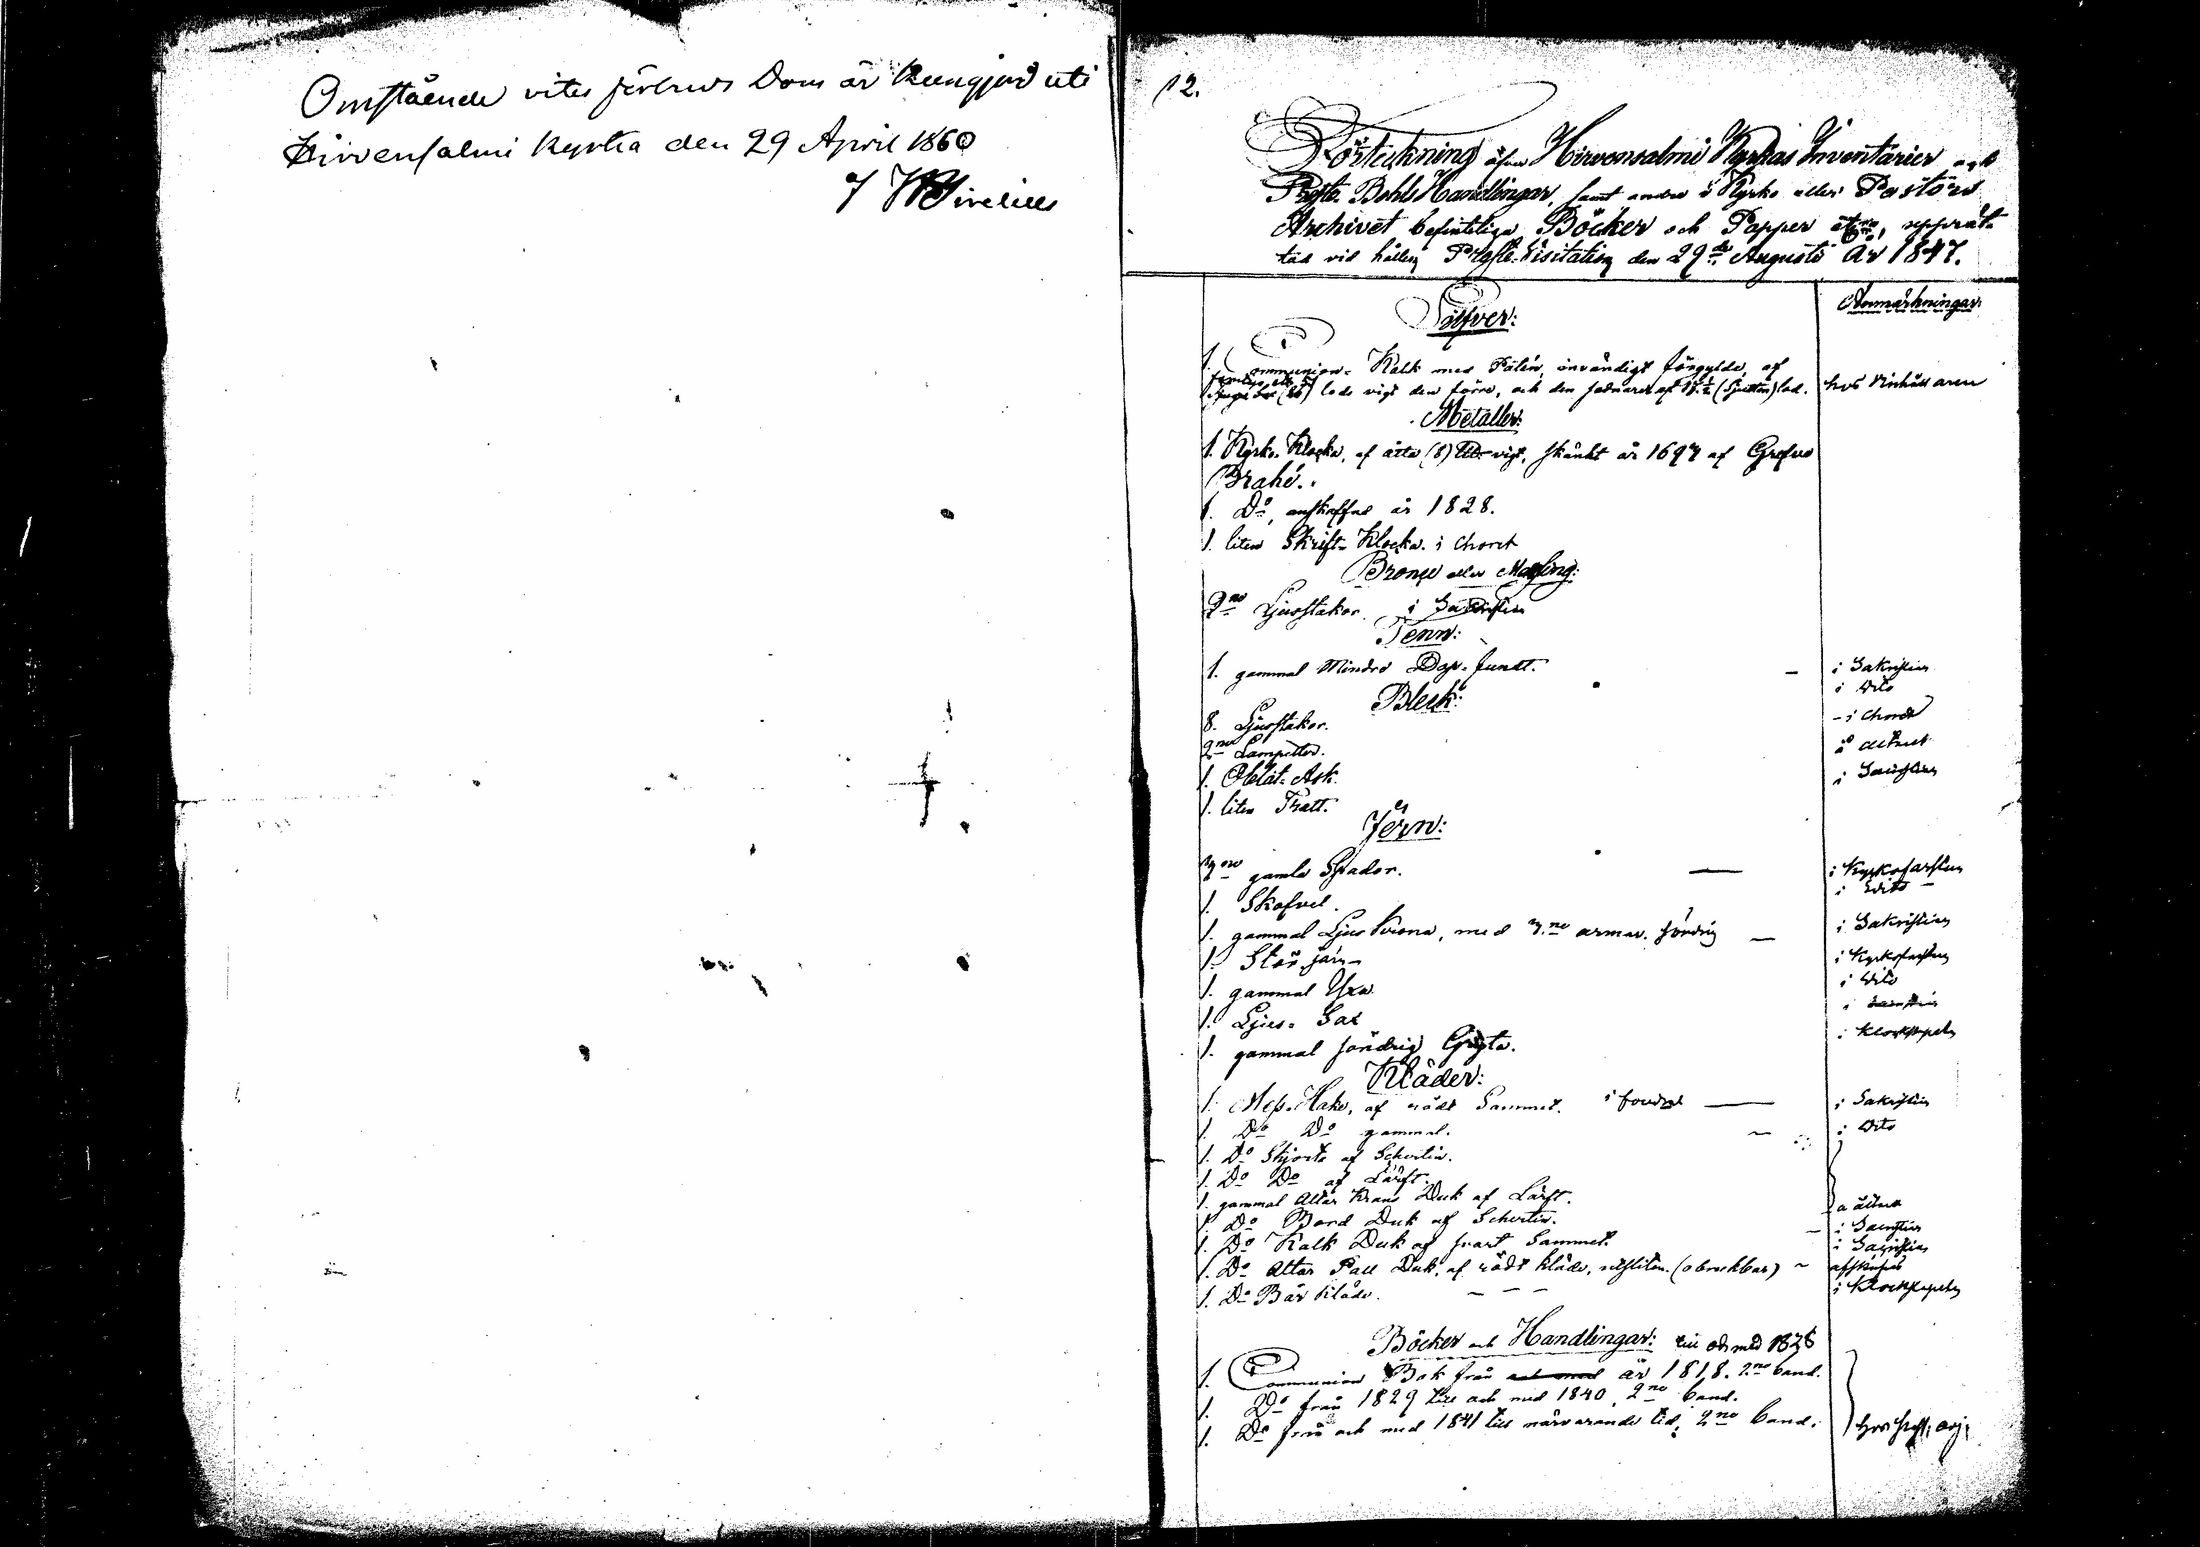 Omstående vites förbuds Dom är kungjord uti
Hirvensalmi kyrka den 29 April 1860
12.
Förteckning öfver Hirvensalmi Kyrkas Inventarier och
Proste-Bohls Handlingar, samt andra i Kyrko eller Pastors
Archivet befintliga Böcker och Papper &tc, upprät-
tad vid hållen Prosts-Visitation den 29de Augusti År 1847.
Anmärkningar:
Silfver:
1. Communion-Kalk med Patén, invändigt förgylde, af
lods vigt den förre, och den sednare af lod.
Metaller:
1. Kyrko-Klocka, af åtta (8) vigt, skänkt år 1697 af Grefve
Brahé.
1. Do, anskaffad år 1828.
1. liten Skrift-Klocka. i Choret
Bronze eller Messing:
2ne Ljusstakar. i Sakristian
Tenn:
1. gammal mindre Dop-funt. — i Sakristian
i dito
Bleck:
8. Ljusstakar. - i Choret
2ne Lampetter. å altaret
1. Oblat-Ask. i Sacristian
1. liten Tratt.
Jern:
3ne gamla Spador. — i Kyrkofarstun
1. Skofvel. i dito —
1. gammal Ljus Krona, med 3.ne armar. söndrig — i Sakristian
1. Stör-järn — i Kyrkofarstun
1. gammal Yxa. i dito
1. Ljus-Sax i
1. gammal söndrig Gryta. i Klockstapeln
Kläder:
1. Mess-Hake, af rödt Sammet. i fodral — i Sakristian
1. Do Do gammal. — i dito
1. Do Skjorta af Schertin.
1. Do Do af Lärft.
1. gammal Altar Krans Duk af Lärft.
1. Do Bord Duk af Schertin. å altaret
1. Do Kalk Duk af svart Sammet. — i Sacristian
i Sacristian
1. Do Altar Pall Duk, af rödt kläde, utsliten. (obrukbar) —
1. Do Bår Kläde. — — — i Klockstapeln
Böcker och Handlingar: till och med 1828
1. Communion Bok från och med år 1818. 2.ne band.
1. Do från 1829 till och med 1840, 2ne band.
1. Do från och med 1841 till närvarande tid, 2ne band.